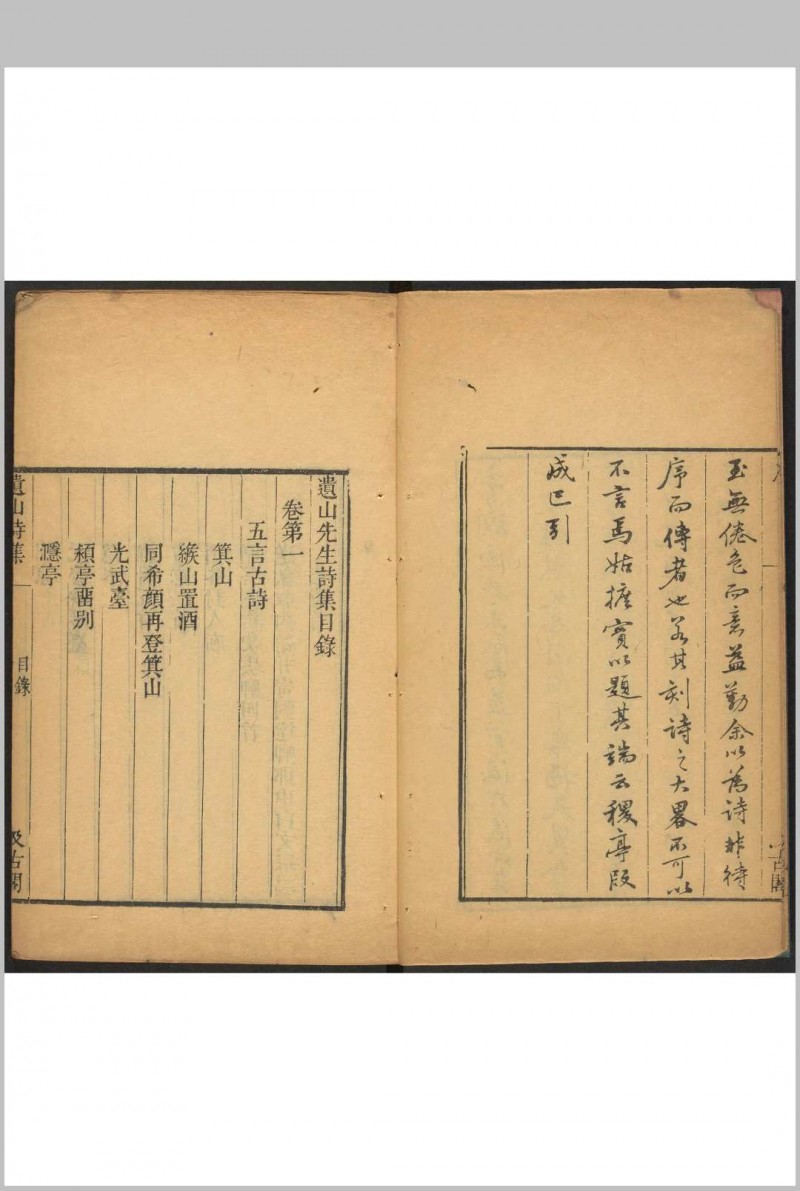 玉無倦色而意益勤余以為詩非待
序而傳者也若其刻詩之大畧不可以
不言焉姑摭實以題其端云稷亭段
成己引
古閣
遺山先生詩集目錄
卷第一
五言古詩
箕山
緱山置酒
同希顔再登箕山
光武臺
潁亭畱别
㶏亭
遺山詩集
目錄
汲古閣